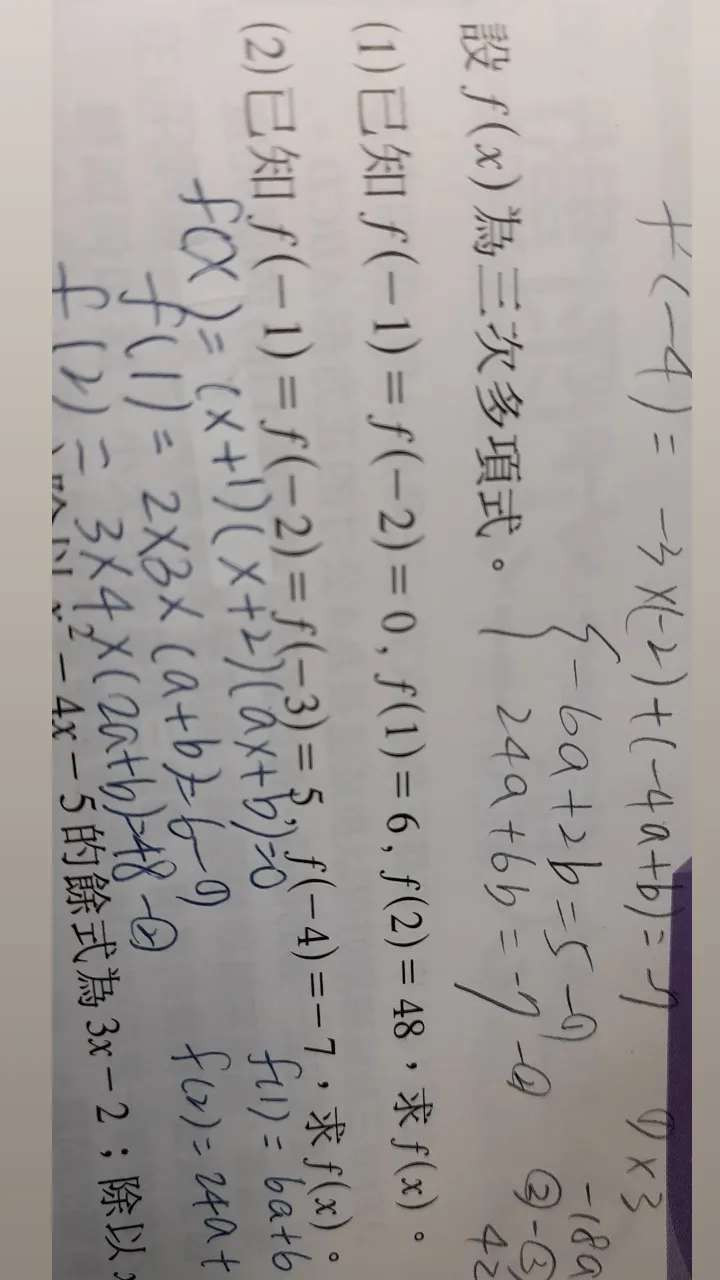 f(-4) = -3×(-2)+(-4a+b)=-7 ①×3
-18a
{-6a+2b=5-①
24a+6b=-7-②
②-③
42
設 f(x) 為三次多項式。
(1) 已知 f(-1)=f(-2)=0, f(1)=6, f(2)=48,求 f(x)。
(2) 已知 f(-1)=f(-2)=f(-3)=5, f(-4)=-7,求 f(x)。
f(x)=(x+1)(x+2)(ax+b)=0
f(1)=6a+b
f(1)=2×3×(a+b)=6-①
f(2)=24a+
f(2)=3×4×(2a+b)=48-②
x²-4x-5 的餘式為 3x-2;除以